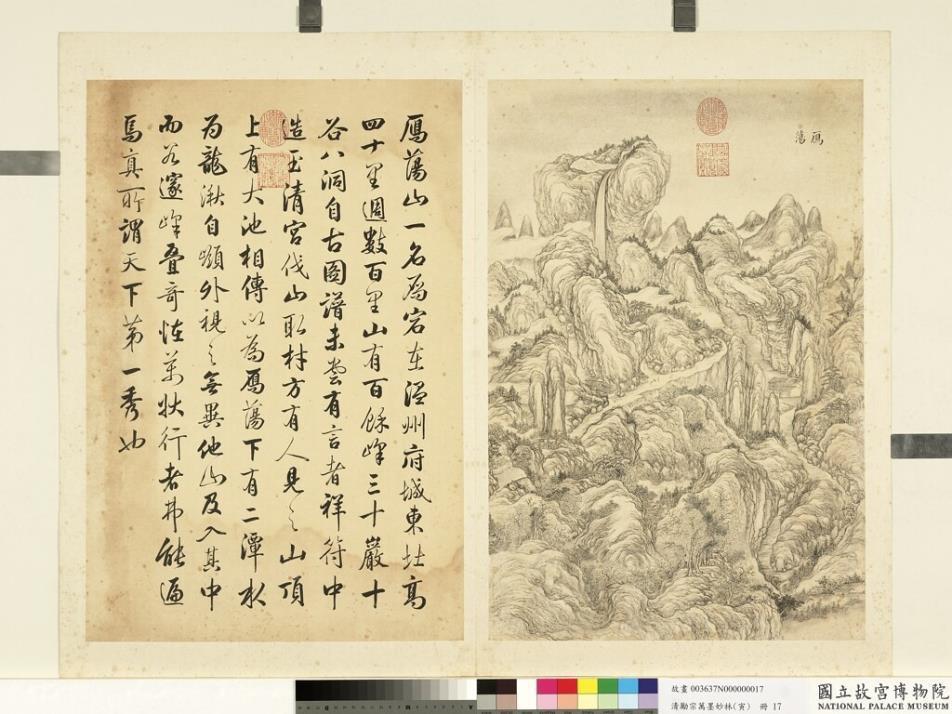 鴈蕩
鴈蕩山一名鴈宕在温州府城東北高
四十里週數百里山有百餘峰三十巖十
谷八洞自古圖譜未嘗有言者祥符中
造玉清宮伐山取材方有人見之山頂
上有大池相傳以為鴈蕩下有二潭水
為龍湫自嶺外視之無異他山及入其中
而谷邃峰叠奇怪萬狀行者弗能遍
焉真所謂天下第一秀也
故畫 003637N000000017
清勵宗萬墨妙林(寅) 冊 17
國立故宮博物院
NATIONAL PALACE MUSEUM